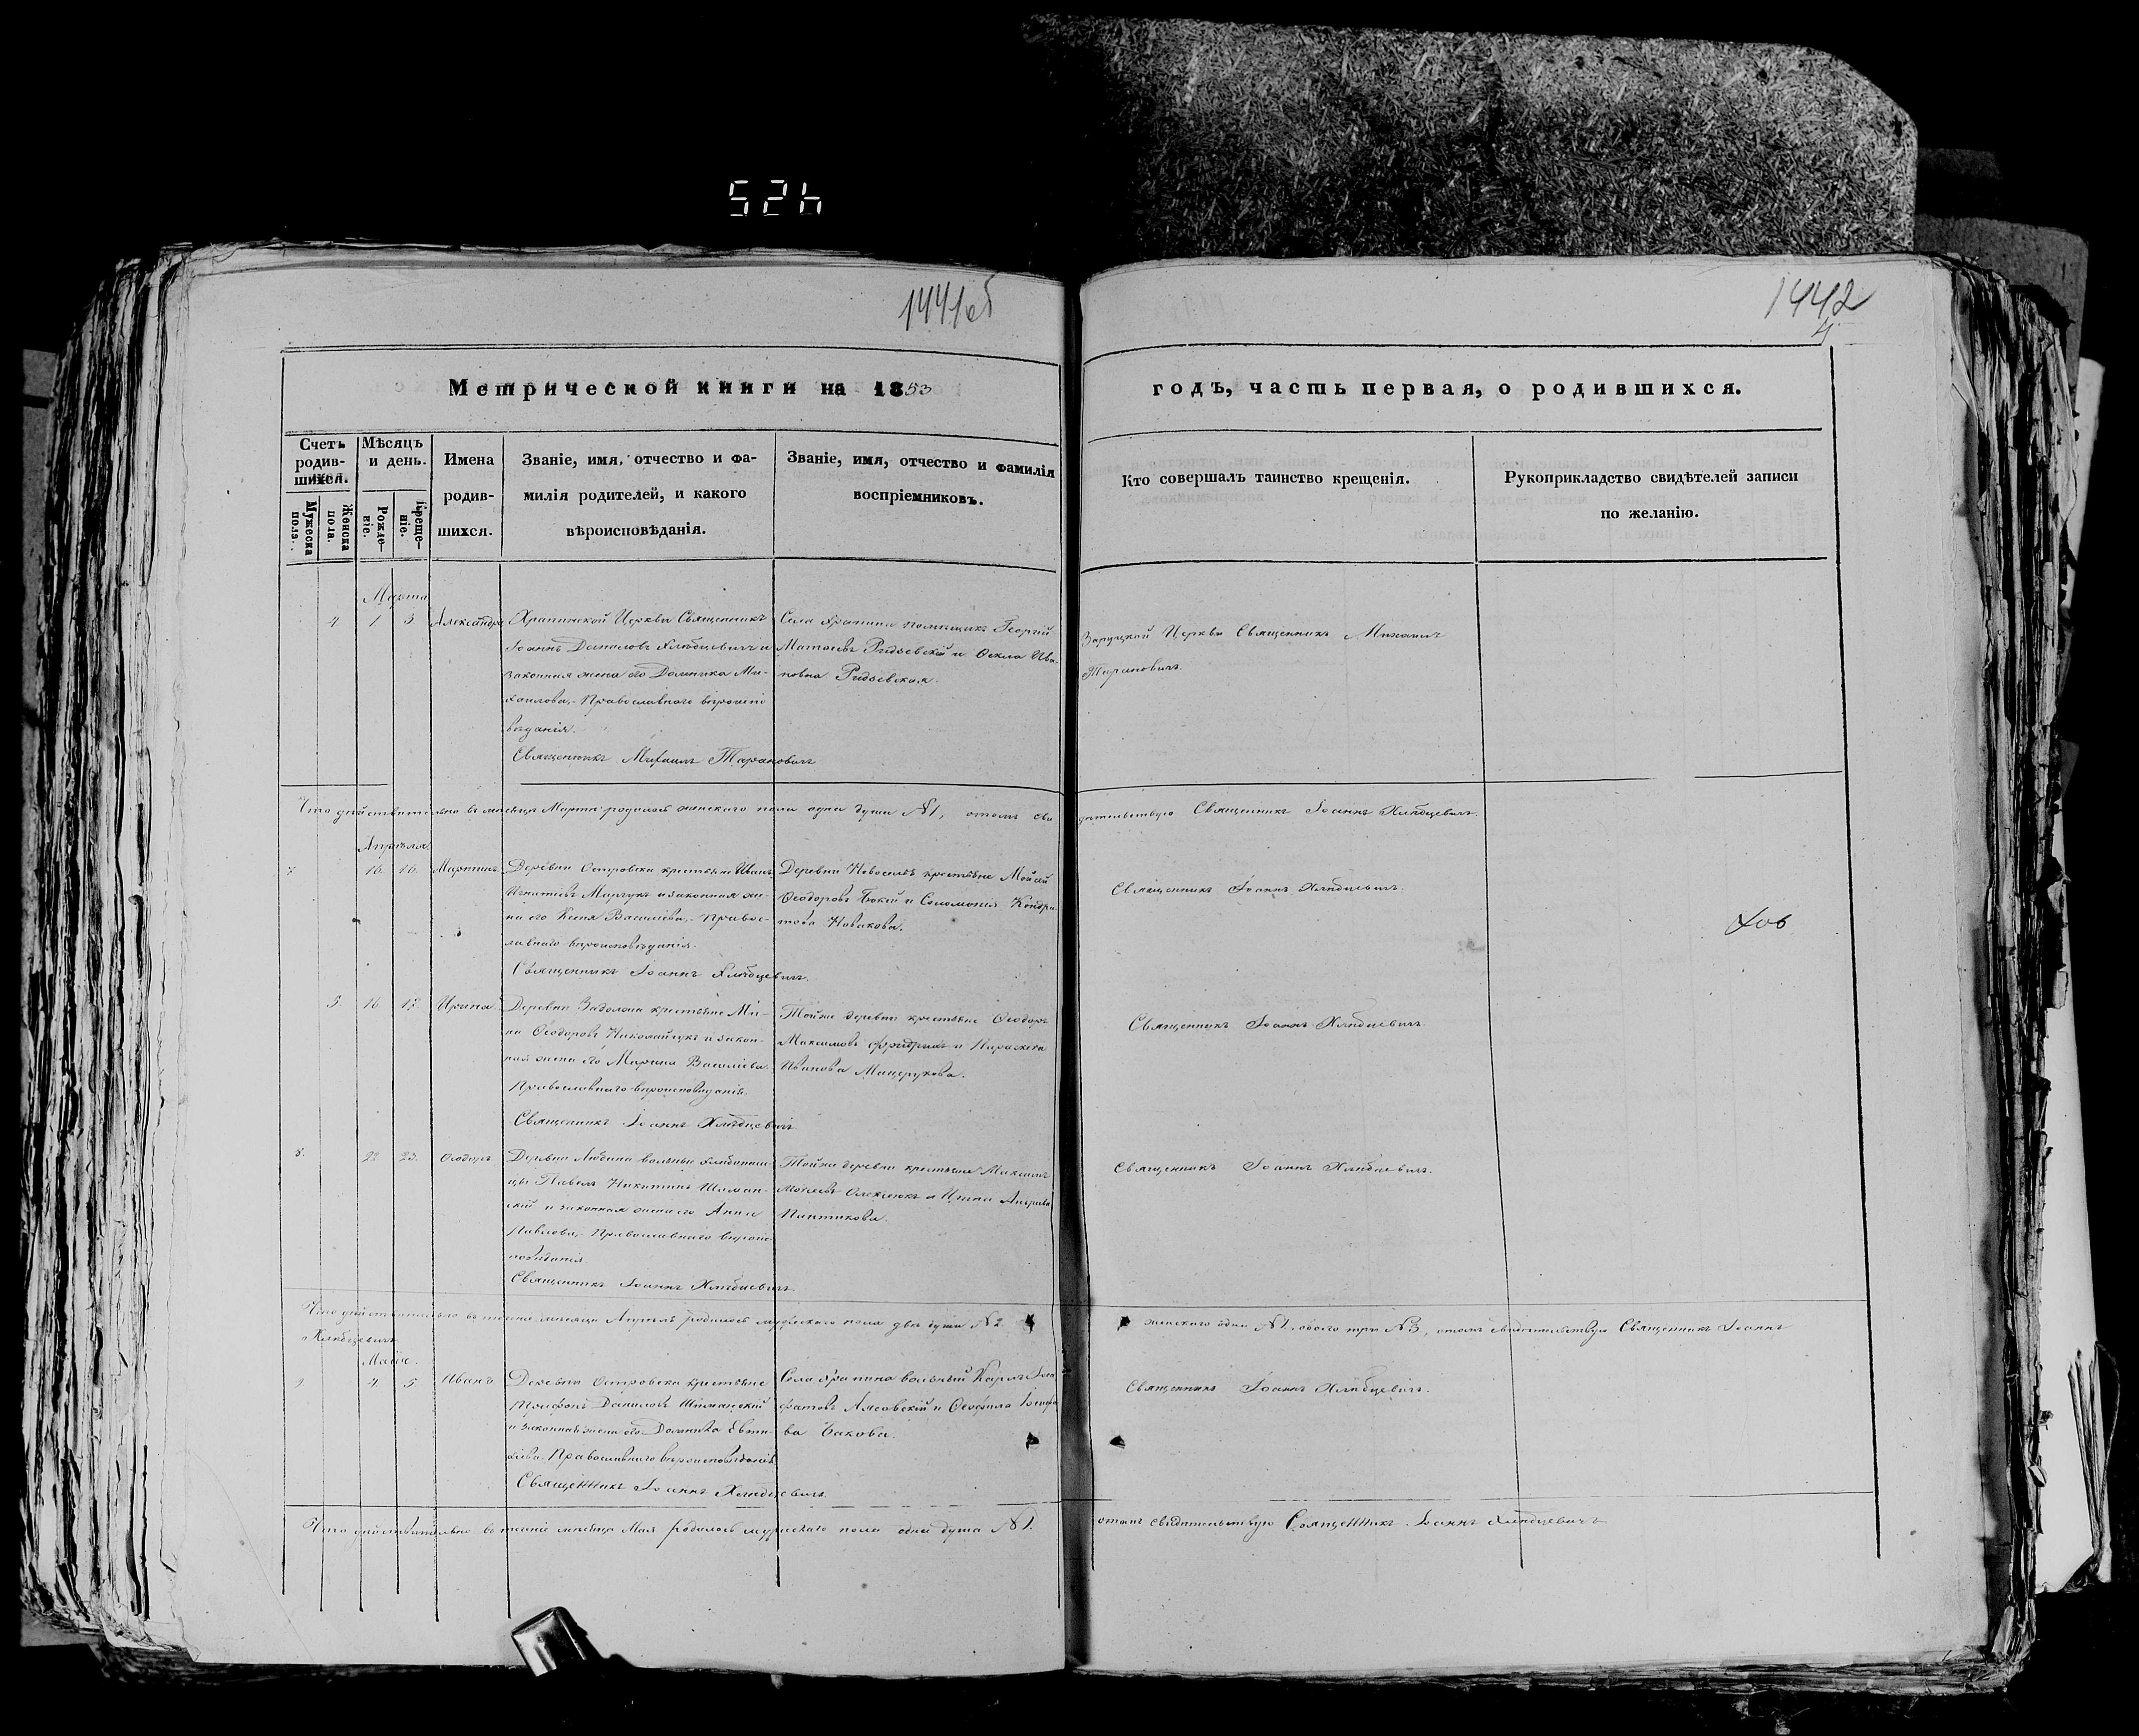 526
1441об
1442
4
Метрической книги на 1853
годъ, часть первая, о родившихся.
Счетъ родив-шихся.
Мужеска пола.
Женска пола.
Мѣсяцъ и день.
Рожде-ніе.
Креще-ніе.
Имена
родив-
шихся.
Званіе, имя, отчество и фа-
милія родителей, и какого
вѣроисповѣданія.
Званіе, имя, отчество и фамилія
воспріемниковъ.
Кто совершалъ таинство крещенія.
Рукоприкладство свидѣтелей записи
по желанію.
Марта
4 1 3 Александра
Храпинской Церкви Священникъ
Іоаннъ Даниловъ Хлѣбцевичъ и
законная жена его Домника Ми-
хаилова, Православнаго вѣроиспо
вѣданія.
Священникъ Михаилъ Тарановичъ
Села Храпина помѣщикъ Георгій
Матвѣевъ и Ѳекла Ива-
новна
Церкви Священникъ Михаилъ
Тарановичъ.
Что дѣйствительно въ мѣсяцѣ Мартѣ родилась женскаго пола одна душа №1, отомъ сви
дѣтельствую Священникъ Іоаннъ Хлѣбцевичъ.
Апрѣля
7 16. 16. Мартинъ
Деревни Островска крестьяне Иванъ
Игнатіевъ и законная же-
на его Ксенія Василіева, Правос-
лавнаго вѣроисповѣданія.
Священникъ Іоаннъ Хлѣбцевичъ.
Деревни крестьяне Мойсей
Ѳеодоровъ и Соломонія Кондра
това Новакова.
Священникъ Іоаннъ Хлѣбцевичъ.
5. 16 17. Ирина
Деревни крестьяне Ми-
на Ѳеодоровъ Николайчукъ и закон-
ная жена его Марина Василіева
Православнаго вѣроисповѣданія.
Священникъ Іоаннъ Хлѣбцевичъ
Тойже деревни крестьяне Ѳеодоръ
Максимовъ и Параскева
Иванова Мацерукова.
Священникъ Іоаннъ Хлѣбцевичъ.
8. 22 23. Ѳеодоръ
Деревни вольные хлѣбопаш
цы Павелъ Никитинъ Шиман-
скій и законная жена его Анна
Павлова, Православнаго вѣроис
повѣданія
Священникъ Іоаннъ Хлѣбцевичъ
Тойже деревни крестьяне Максимъ
Моѵсеевъ Олексіюкъ и
Пантикова.
Священникъ Іоаннъ Хлѣбцевичъ.
Что дѣйствительно въ теченіе мѣсяца Апрѣля родилось мужескаго пола двѣ души №2
женскаго одна №1. обоего три №3, отомъ свидѣтельствую Священникъ Іоаннъ
Хлѣбцевичъ
Маія.
9. 4. 5 Иванъ
Деревни Островска крестьяне
Даниловъ Шиманскій
и законная жена его Домника Евти-
хіева, Православнаго вѣроисповѣданія
Священникъ Іоаннъ Хлѣбцевичъ.
Села Храпина вольный Карлъ
Лясовскій и Ѳеофила
ва Бакова.
Священникъ Іоаннъ Хлѣбцевичъ.
Что дѣйствительно въ теченіе мѣсяца Мая родилось мужескаго пола одна душа №1.
отомъ свидѣтельствую Священникъ Іоаннъ Хлѣбцевичъ